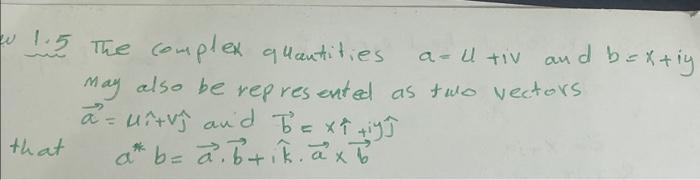 w 1.5 The complex quantities a = u + iv and b = x + iy
may also be represented as two vectors
a⃗ = uî + vĵ and b⃗ = xî + iyĵ
that a* b = a⃗ . b⃗ + i k̂ . a⃗ x b⃗